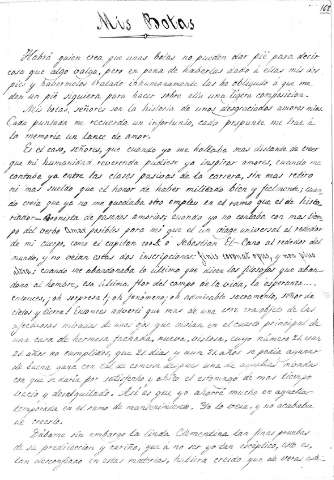 162
Mis Botas
Habrá quien crea que unas botas no pueden dar pié para decir
cosa que algo valga, pero en pena de haberles dado á ellas mis dos
piés y habérmelos tratado inhumanamente las he obligado á que me
den un pié siquiera para hacer sobre ella una ligera composicion.
Mis botas, señores son la historia de unos desgraciados amoríos.
Cada puntada me recuerda un infortunio, cada pespunte me trae á
la memoria un lance de amor.
Es el caso, señores, que cuando ya me hallaba mas distante de creer
que ni humanidad reverenda pudiese ya inspirar amores, cuando me
contaba ya entre las clases pasivas de la carrera, sin mas retiro
ni mas sueldo que el honor de haber militado bien y fielmente; cuan-
do creia que ya no me quedaba otro empleo en el ramo que el de histo-
riador-cronista de pasiones amorosas; cuando ya no contaba con mas
posibles para mí que el un viage universal al rededor
de mi cuerpo, como el capitan Cook ó Sebastian El-Cano al rededor del
mundo, y no veian estas dos inscripciones: finis coronat opus, y non plus
ultra; cuando me abandonaba lo último que dicen los filósofos que aban-
dona al hombre, esa última flor del campo de la vida, la esperanza...
entonces, ¡oh sorpresa! ¡oh fenómeno! ¡oh admirable sacramento, señor de
cielos y tierra! Entonces advertí que mas de una vez
miradas de unos ojos que vivian en el cuarto principal de
una casa de hermosa fachada, nueva, vistosa, cuyo número 21 eran
21 años no cumplidos, que 21 dias y aun 21 años se podia ayunar
de buena gana con tal de comerse despues una de aquellas miradas
con que se daria por satisfecho y ahito el estómago de mas tiempo
vacío y desalquilado. Así es que yo ahorré mucho en aquella
temporada en el ramo de mantenimientos. Yo lo veia, y no acababa
de creerlo.
Dábame sin embargo la linda Clementina tan finas pruebas
de su predileccion y cariño, que á no ser yo tan escéptico, esto es,
tan desconfiado en estas materias, hubiera creido que de veras esta-